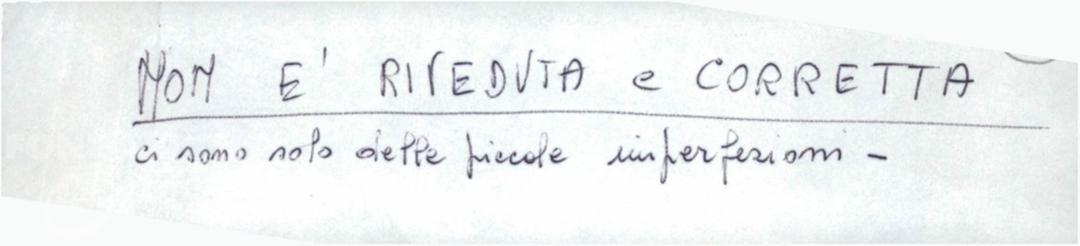 NON E' RIVEDUTA e CORRETTA
ci sono solo delle piccole imperfezioni -